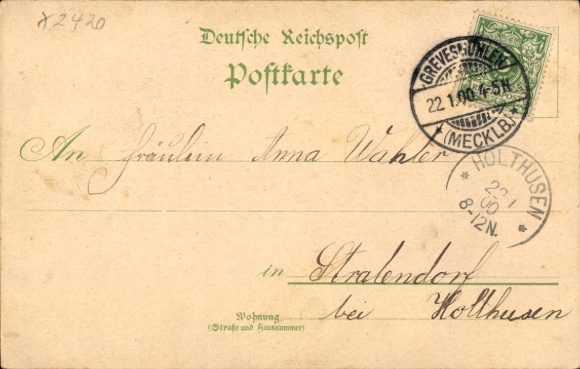 x2420
Deutsche Reichspost
Postkarte
GREVESMÜHLEN
22.1.00. 4-5N
(MECKLB.)
An Fräulein Anna Wahler
HOLTHUSEN
22 1
00
8-12N.
in Stralendorf
bei Holthusen
Wohnung
(Straße und Hausnummer)